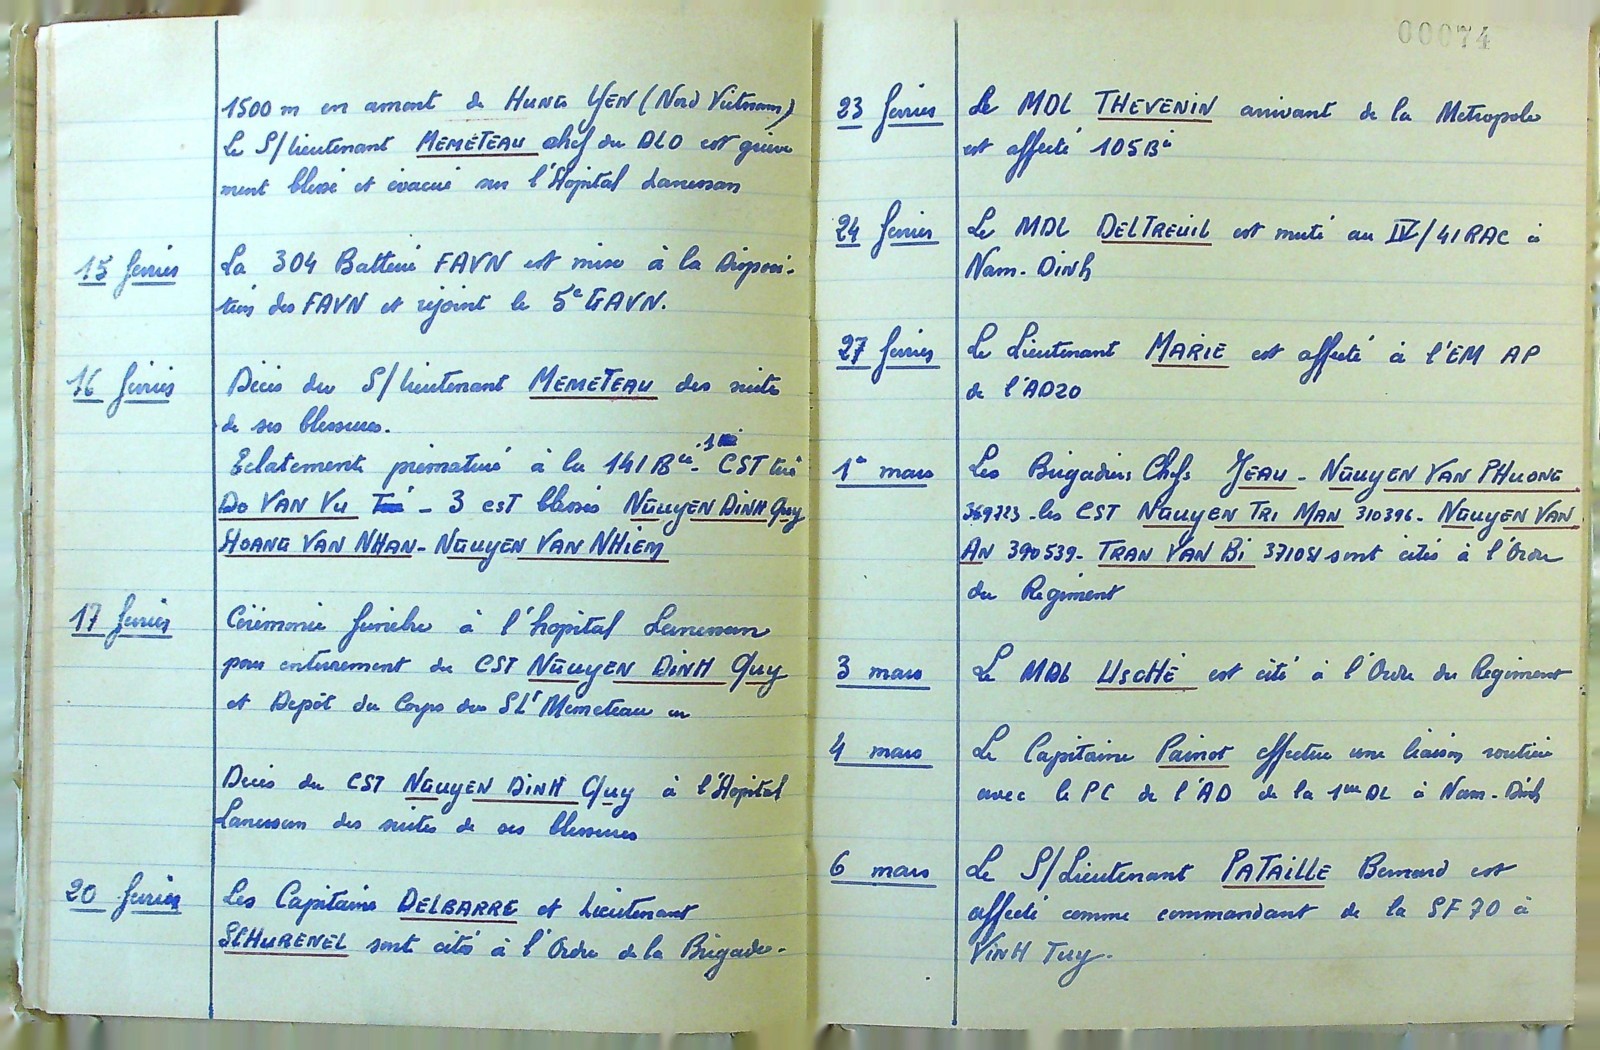 1500 m en amont de HUNG YEN (Nord Vietnam)
Le S/lieutenant MEMETEAU chef du DLO est griève
ment blessé et évacué sur l'Hopital Lanessan
15 février
La 304 Batterie FAVN est mise à la Disposi-
tion des FAVN et rejoint le 5e GAVN.
16 février
Décès du S/lieutenant MEMETEAU des suite
de ses blessures.
Eclatement prématuré à la 141 Bie - 1 CST tué
DO VAN VU Tué - 3 CST blessés NGUYEN DINH Quy
HOANG VAN NHAN - NGUYEN VAN NHIEM
17 février
Cérémonie funèbre à l'hopital Lanessan
pour enterrement du CST NGUYEN DINH Quy
et Depôt du Corps du SLt Memeteau en
Décès du CST NGUYEN DINH Quy à l'Hopital
Lanessan des suites de ses blessures
20 février
Les Capitaine DELBARRE et Lieutenant
SCHURENEL sont cités à l'Ordre de la Brigade.
00074
23 février
Le MDL THEVENIN arrivant de la Metropole
est affecté 105 Bie
24 février
Le MDL DELTREUIL est muté au IV/41 RAC à
Nam-Dinh
27 février
Le Lieutenant MARIE est affecté à l'EM AP
de l'AD20
1er mars
Les Brigadiers Chefs JEAU - NGUYEN VAN PHUONG
369723 - les CST NGUYEN TRI MAN 310396 - NGUYEN VAN
AN 390539 - TRAN VAN Bi 371051 sont cités à l'Ordre
du Regiment
3 mars
Le MDL USCHÉ est cité à l'Ordre du Regiment
4 mars
Le Capitaine Painot effectue une liaison routière
avec le PC de l'AD de la 1ere DL à Nam-Dinh
6 mars
Le S/Lieutenant PATAILLE Bernard est
affecté comme commandant de la SF 70 à
VINH TUY.